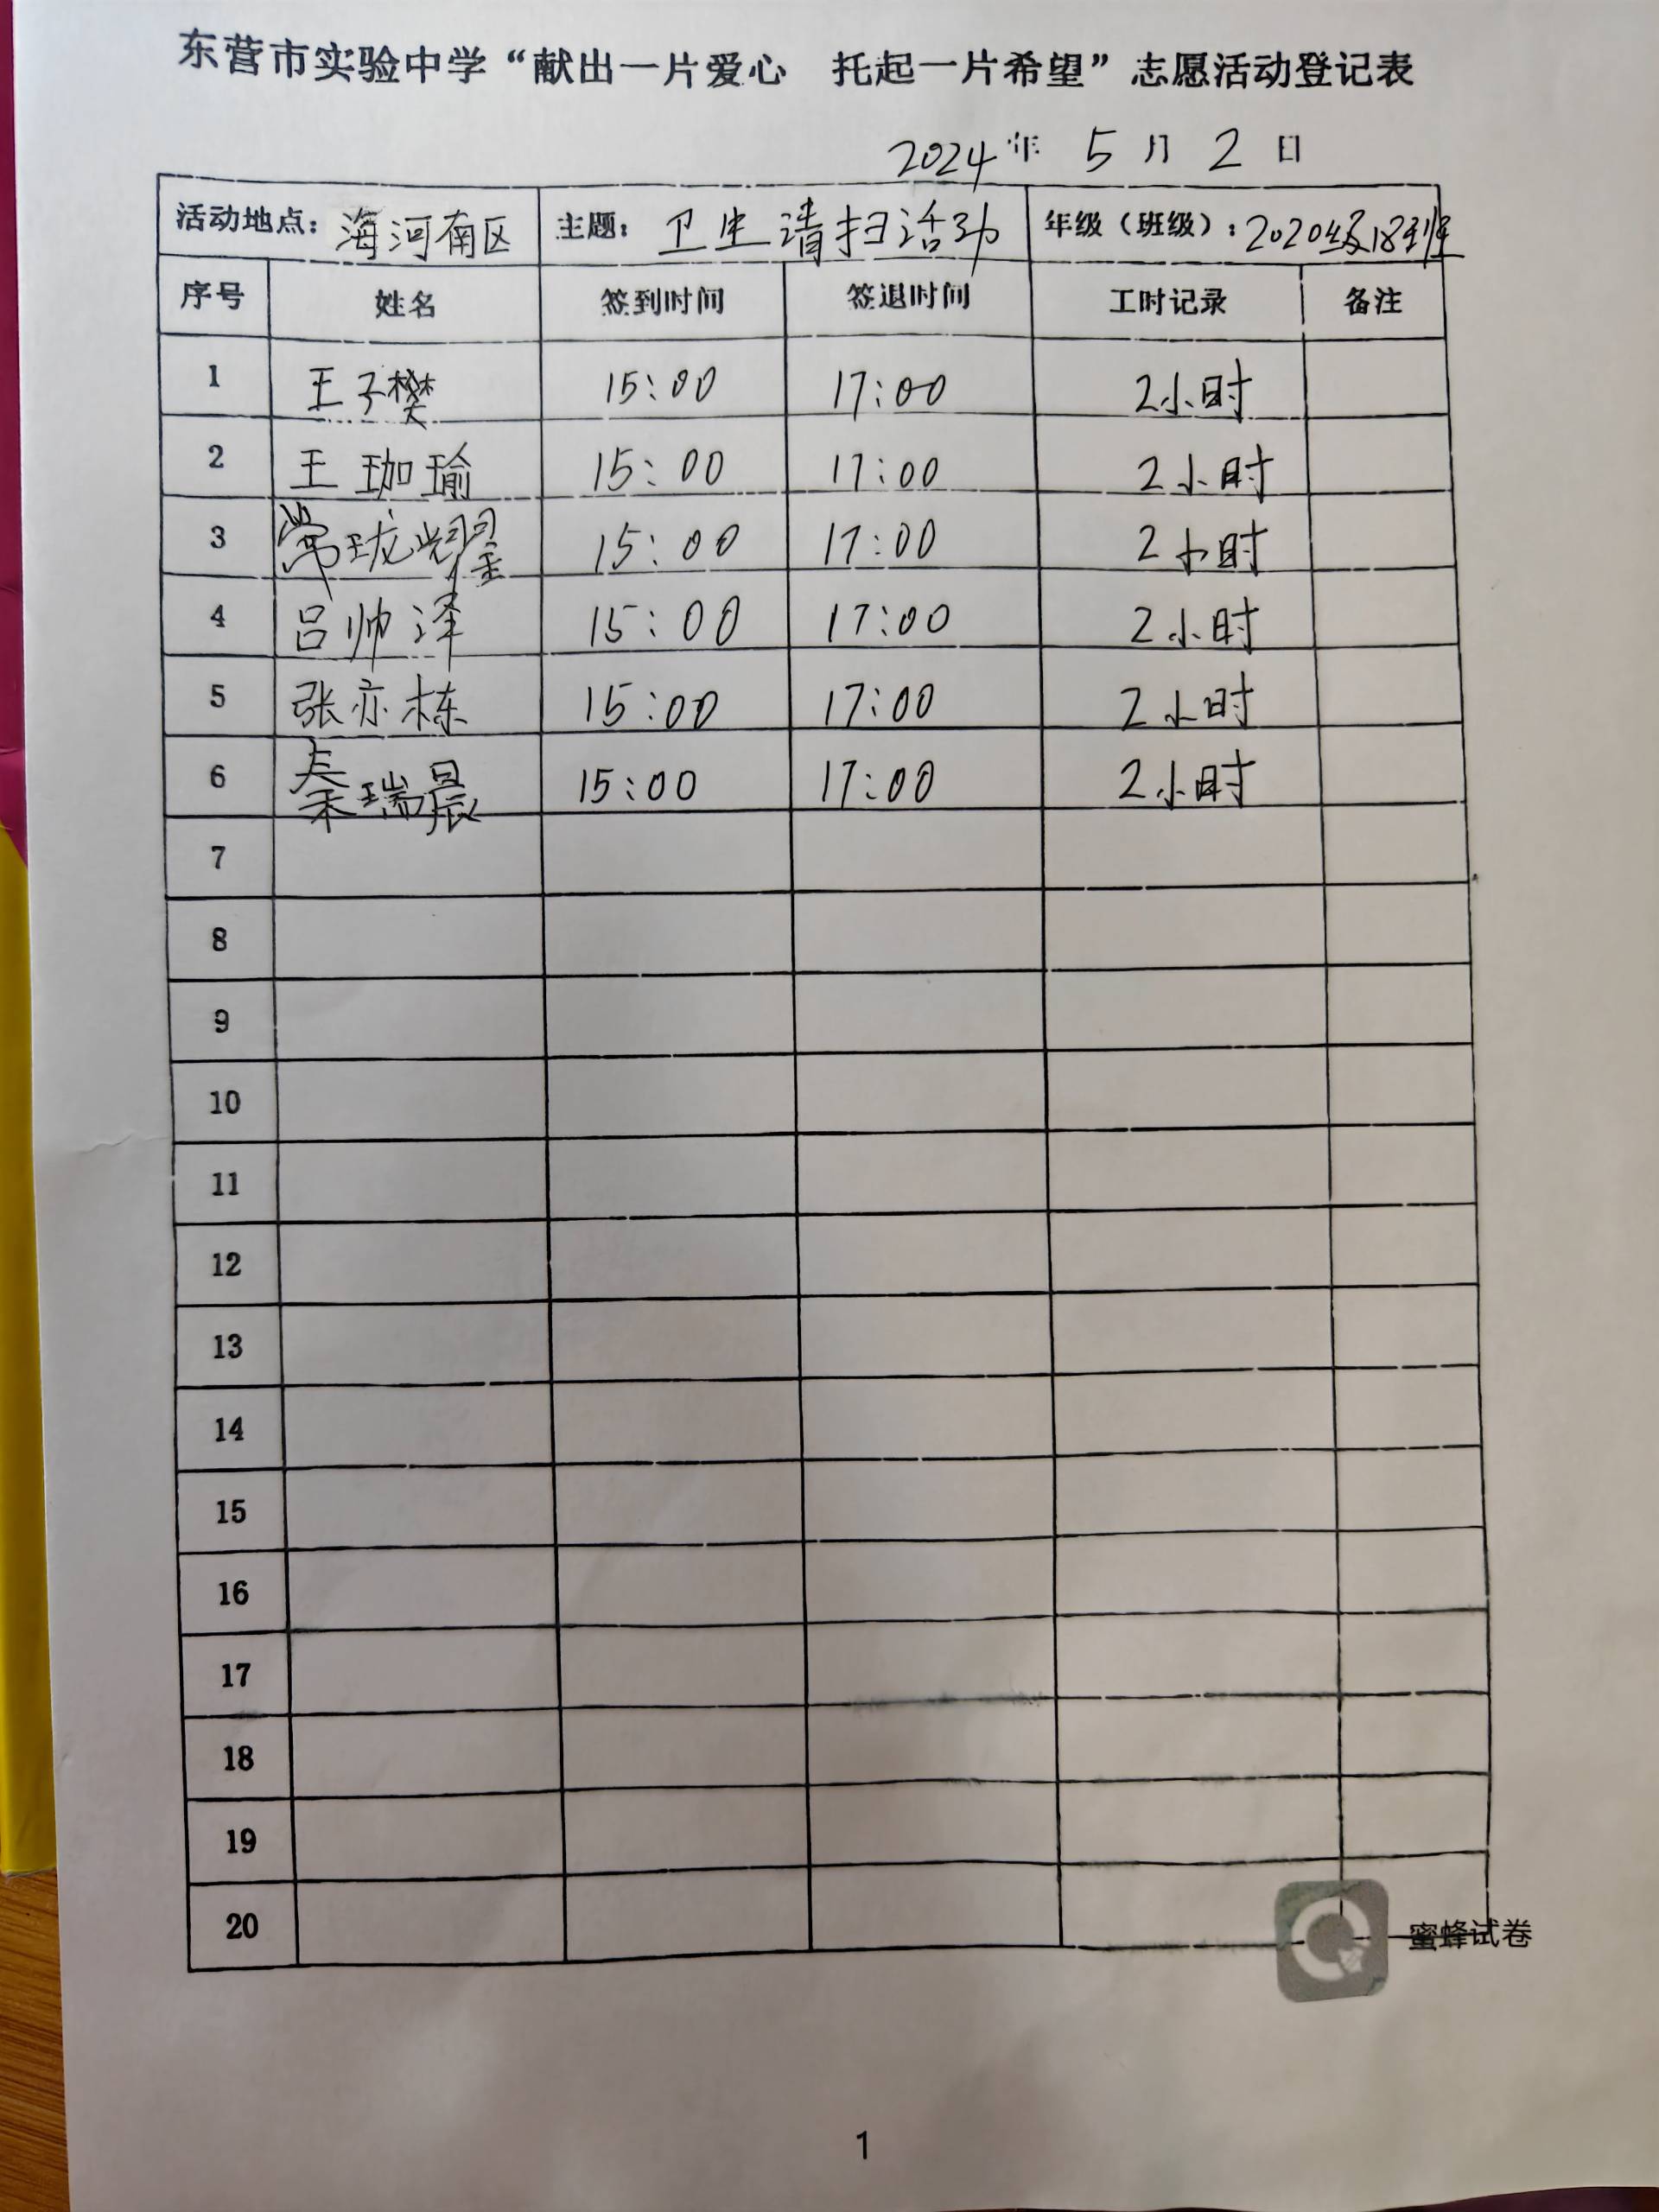 东营市实验中学“献出一片爱心 托起一片希望”志愿活动登记表
2024年 5 月 2 日
活动地点：海河南区 主题：卫生清扫活动 年级（班级）：2020级18班
序号 姓名 签到时间 签退时间 工时记录 备注
1 王子樊 15:00 17:00 2小时
2 王珈瑜 15:00 17:00 2小时
3 常珑耀 15:00 17:00 2小时
4 吕帅泽 15:00 17:00 2小时
5 张亦栋 15:00 17:00 2小时
6 秦瑞晨 15:00 17:00 2小时
7
8
9
10
11
12
13
14
15
16
17
18
19
20
蜜蜂试卷
1